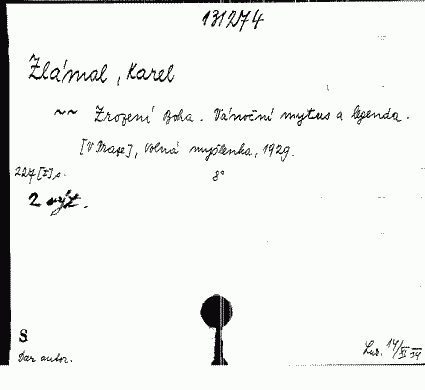 131274
Zlámal, Karel
~~ Zrození Boha. Vánoční mytus a legenda.
[V Praze], Volná myšlenka, 1929.
227 [I] s. 8°
2 výt.
S
Dar autor. 14/XI 34